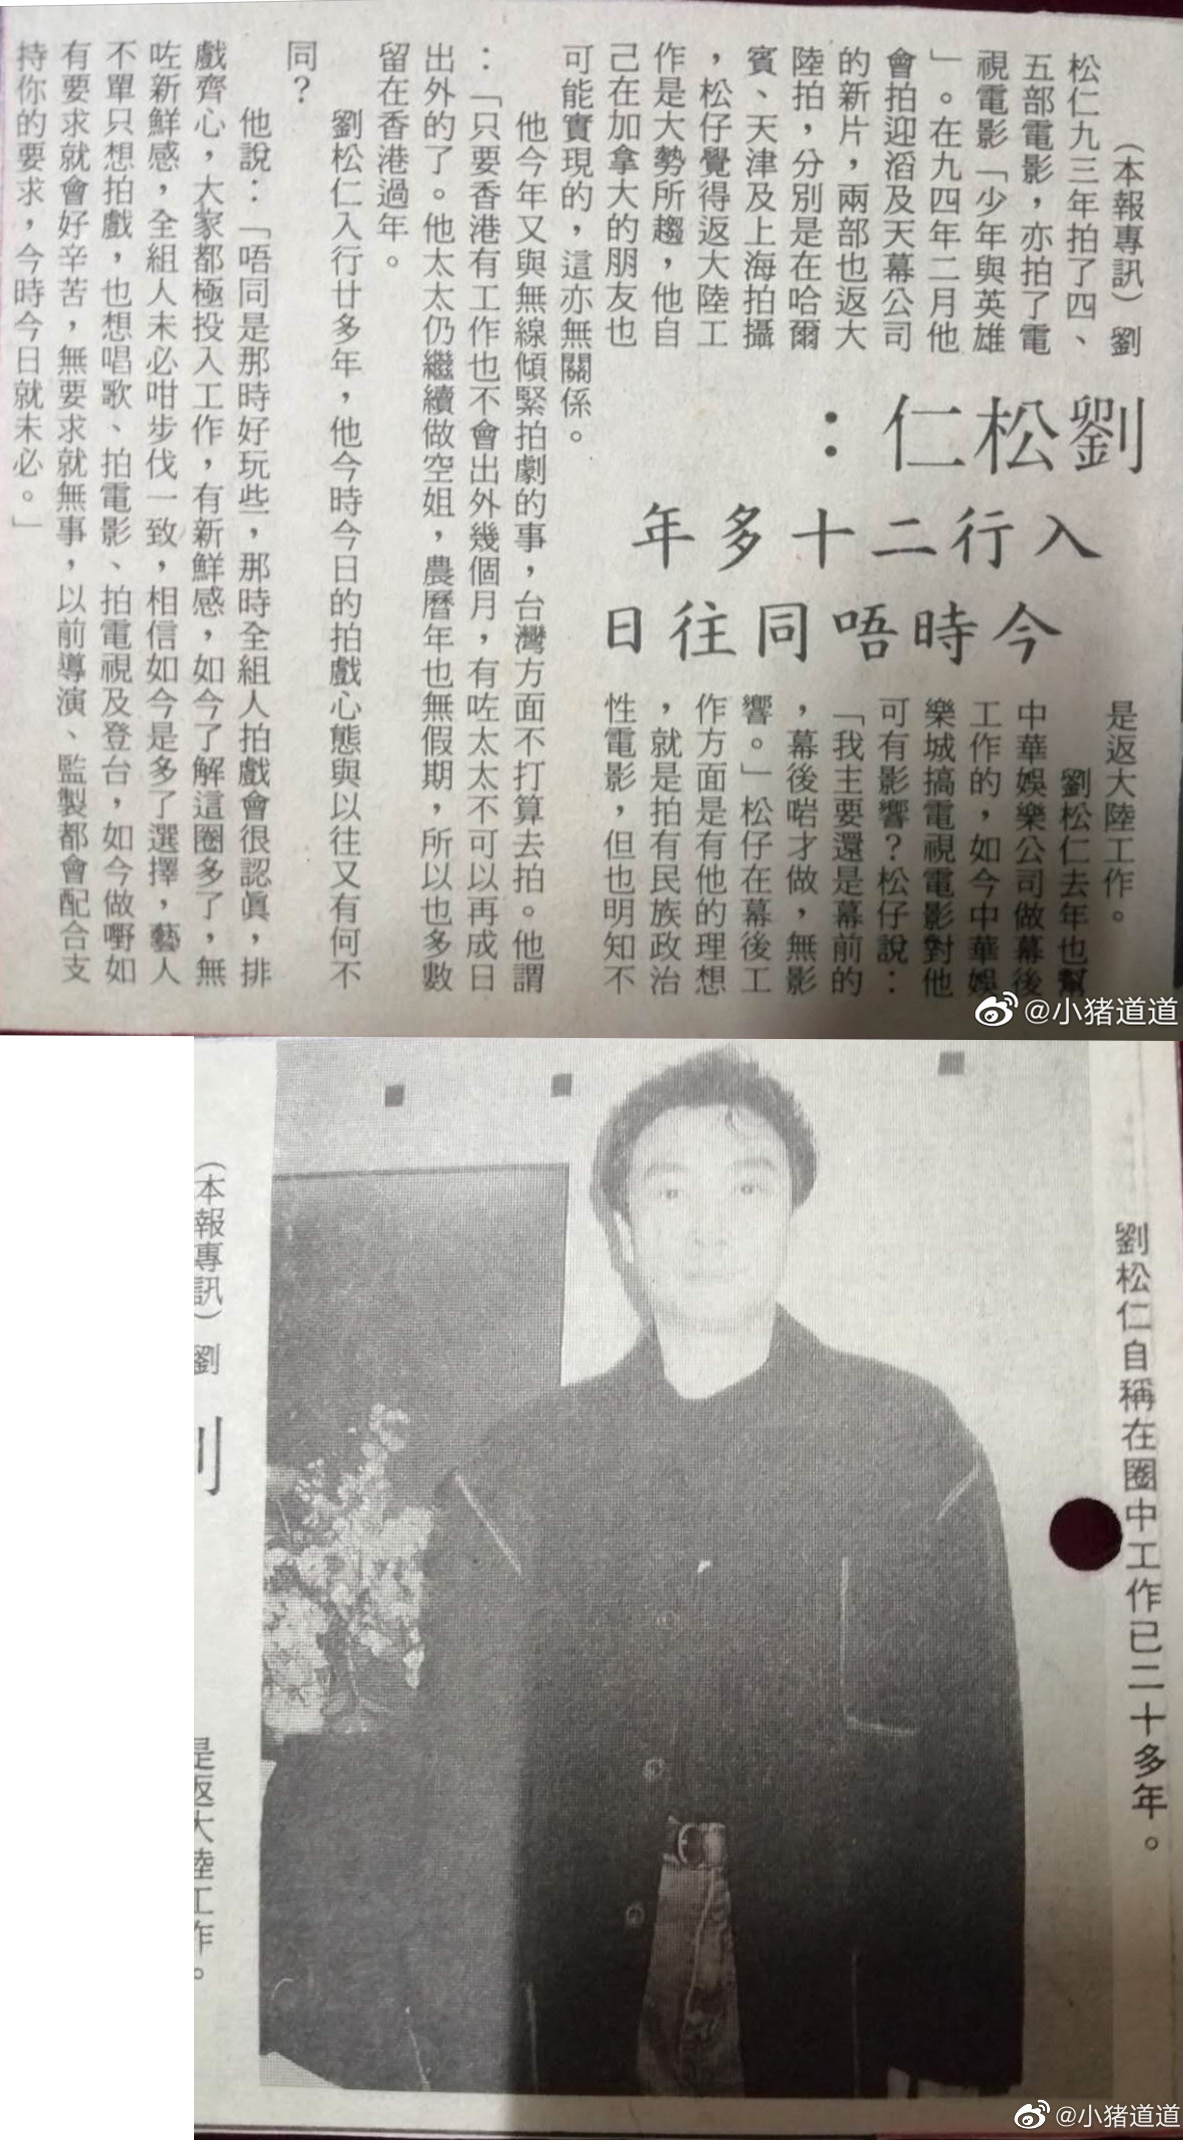 劉松仁：
入行二十多年
今時唔同往日
（本報專訊）劉
松仁九三年拍了四、
五部電影，亦拍了電
視電影「少年與英雄
」。在九四年二月他
會拍迎滔及天幕公司
的新片，兩部也返大
陸拍，分別是在哈爾
賓、天津及上海拍攝
，松仔覺得返大陸工
作是大勢所趨，他自
己在加拿大的朋友也
是返大陸工作。
劉松仁去年也幫
中華娛樂公司做幕後
工作的，如今中華娛
樂城搞電視電影對他
可有影響？松仔說：
「我主要還是幕前的
，幕後啱才做，無影
響。」松仔在幕後工
作方面是有他的理想
，就是拍有民族政治
性電影，但也明知不
可能實現的，這亦無關係。
他今年又與無線傾緊拍劇的事，台灣方面不打算去拍。他謂
：「只要香港有工作也不會出外幾個月，有咗太太不可以再成日
出外的了。他太太仍繼續做空姐，農曆年也無假期，所以也多數
留在香港過年。
劉松仁入行廿多年，他今時今日的拍戲心態與以往又有何不
同？
他說：「唔同是那時好玩些，那時全組人拍戲會很認眞，排
戲齊心，大家都極投入工作，有新鮮感，如今了解這圈多了，無
咗新鮮感，全組人未必咁步伐一致，相信如今是多了選擇，藝人
不單只想拍戲，也想唱歌、拍電影、拍電視及登台，如今做嘢如
有要求就會好辛苦，無要求就無事，以前導演、監製都會配合支
持你的要求，今時今日就未必。」
@小猪道道
劉松仁自稱在圈中工作已二十多年。
（本報專訊）劉
是返大陸工作。
@小猪道道